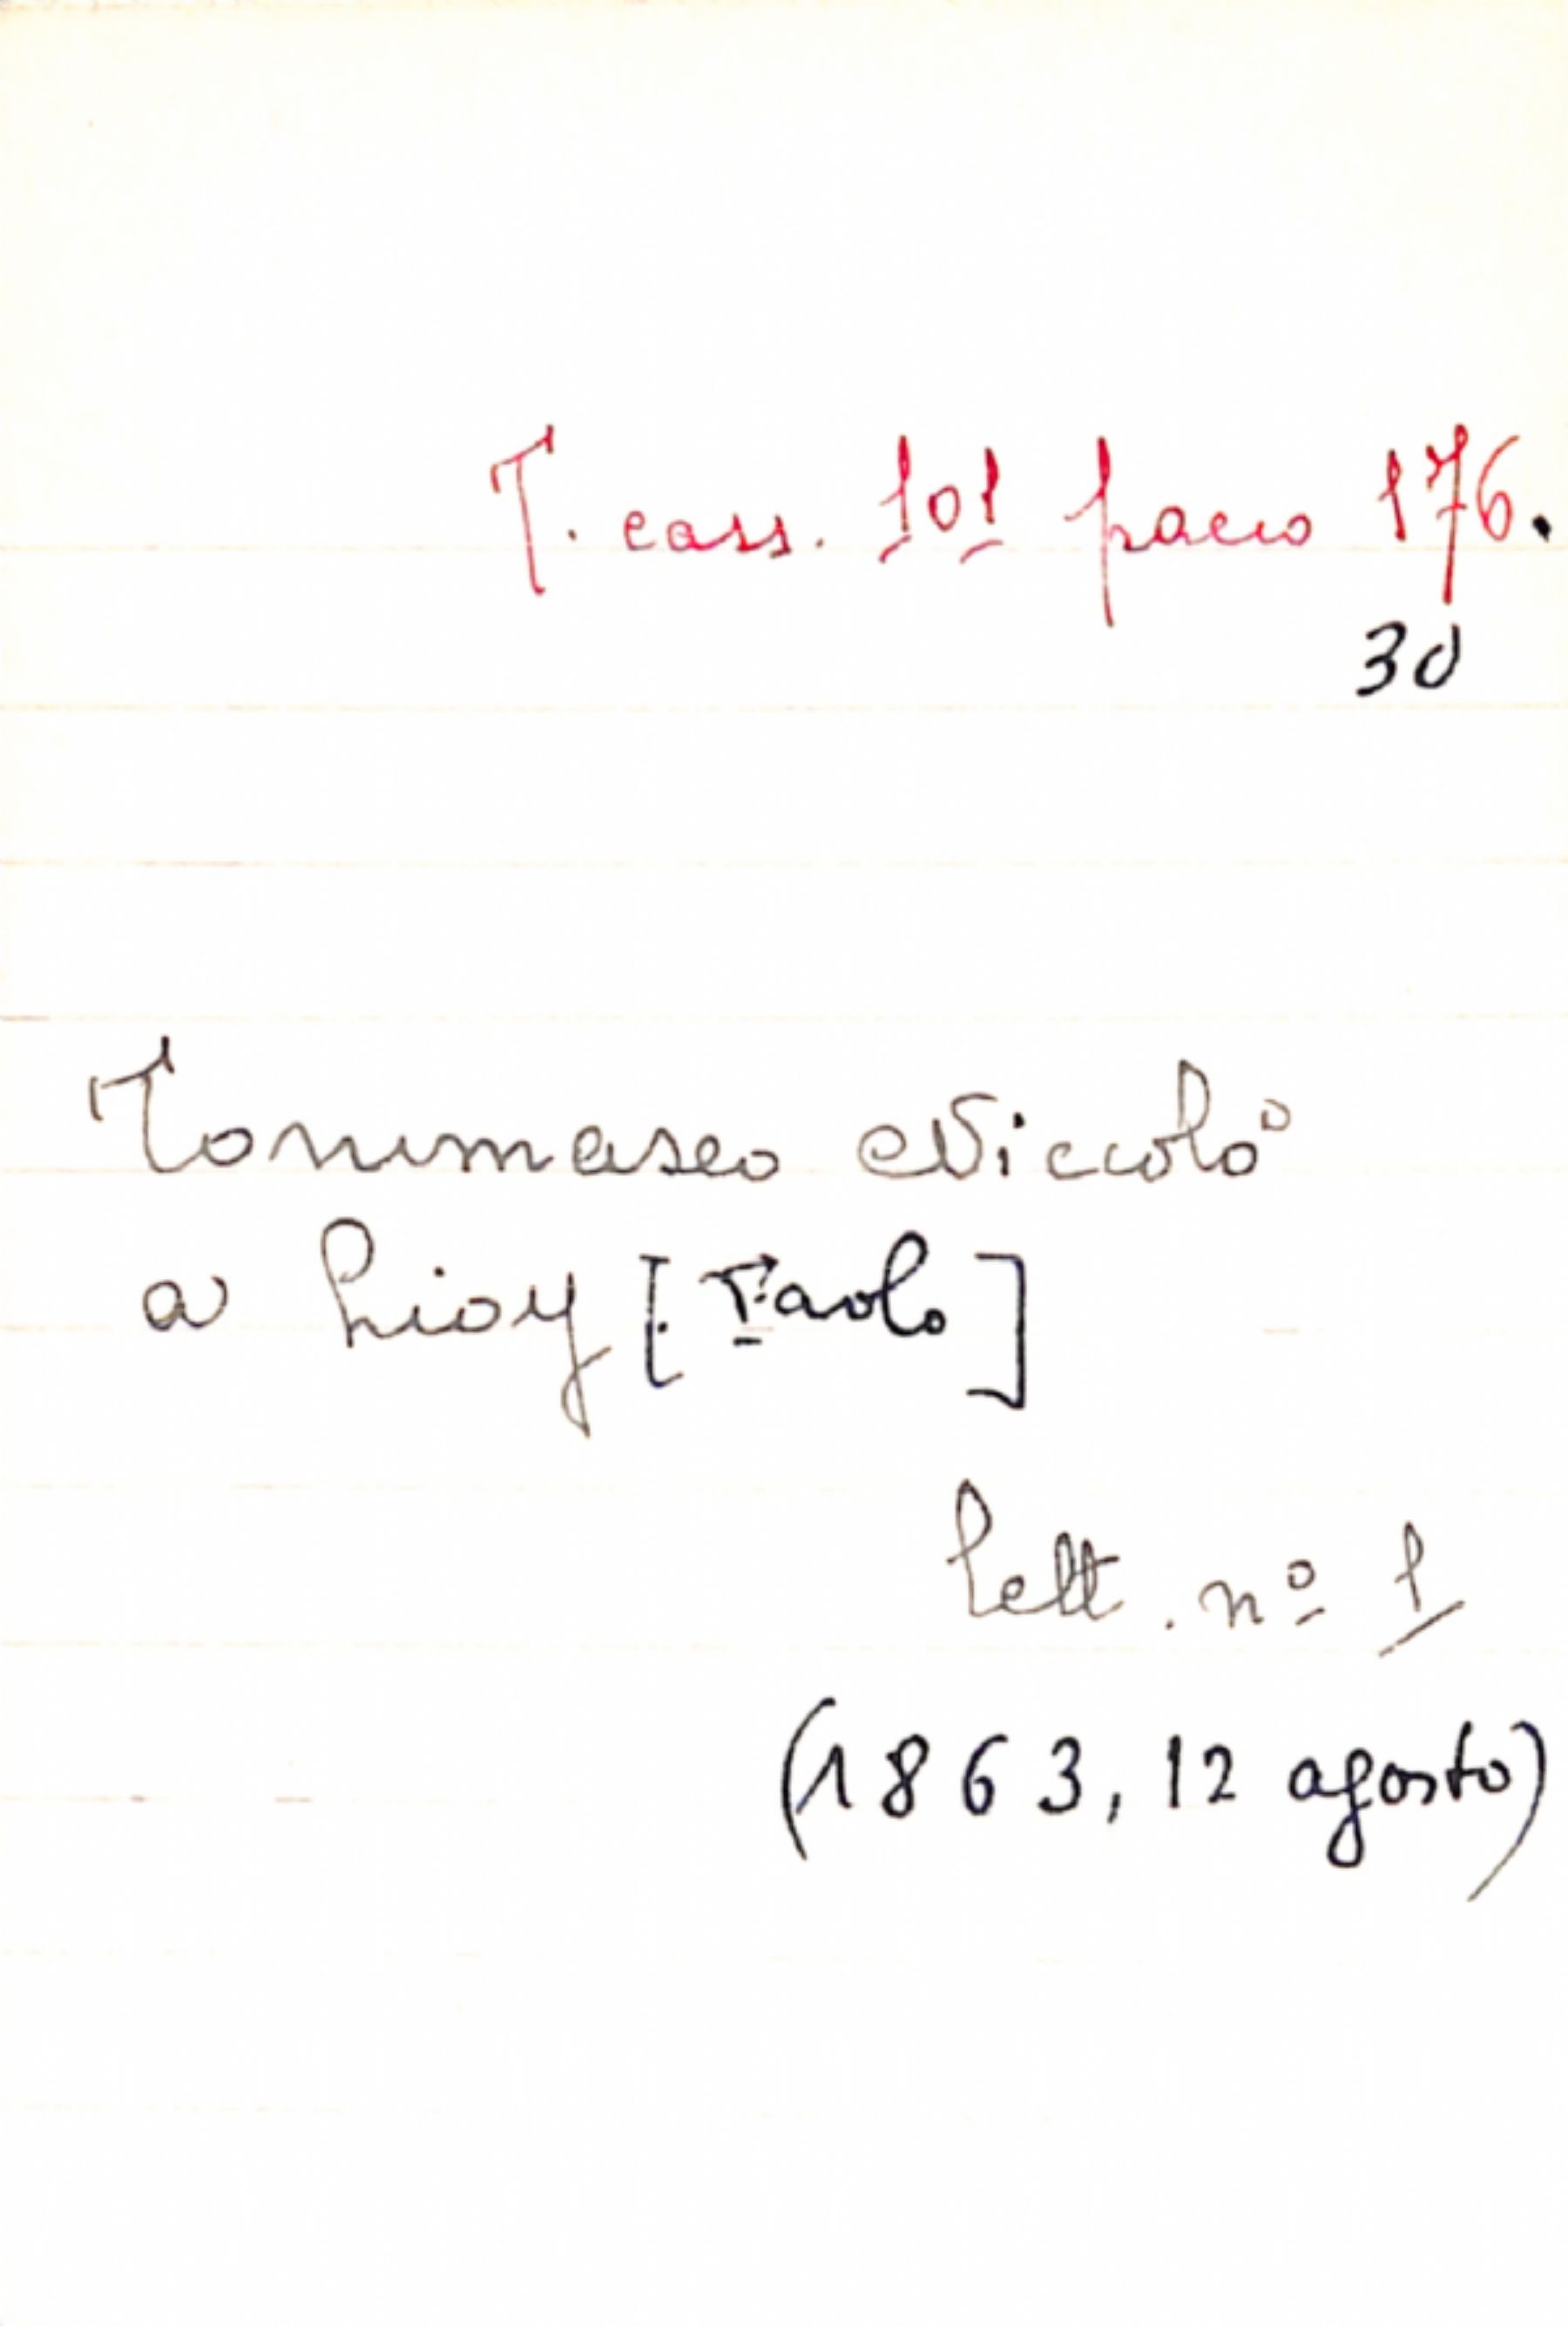 T. cass. 101 pacco 176.
30
Tommaseo Niccolò
a Lioy [Paolo]
lett. nº 1
(1863, 12 agosto)